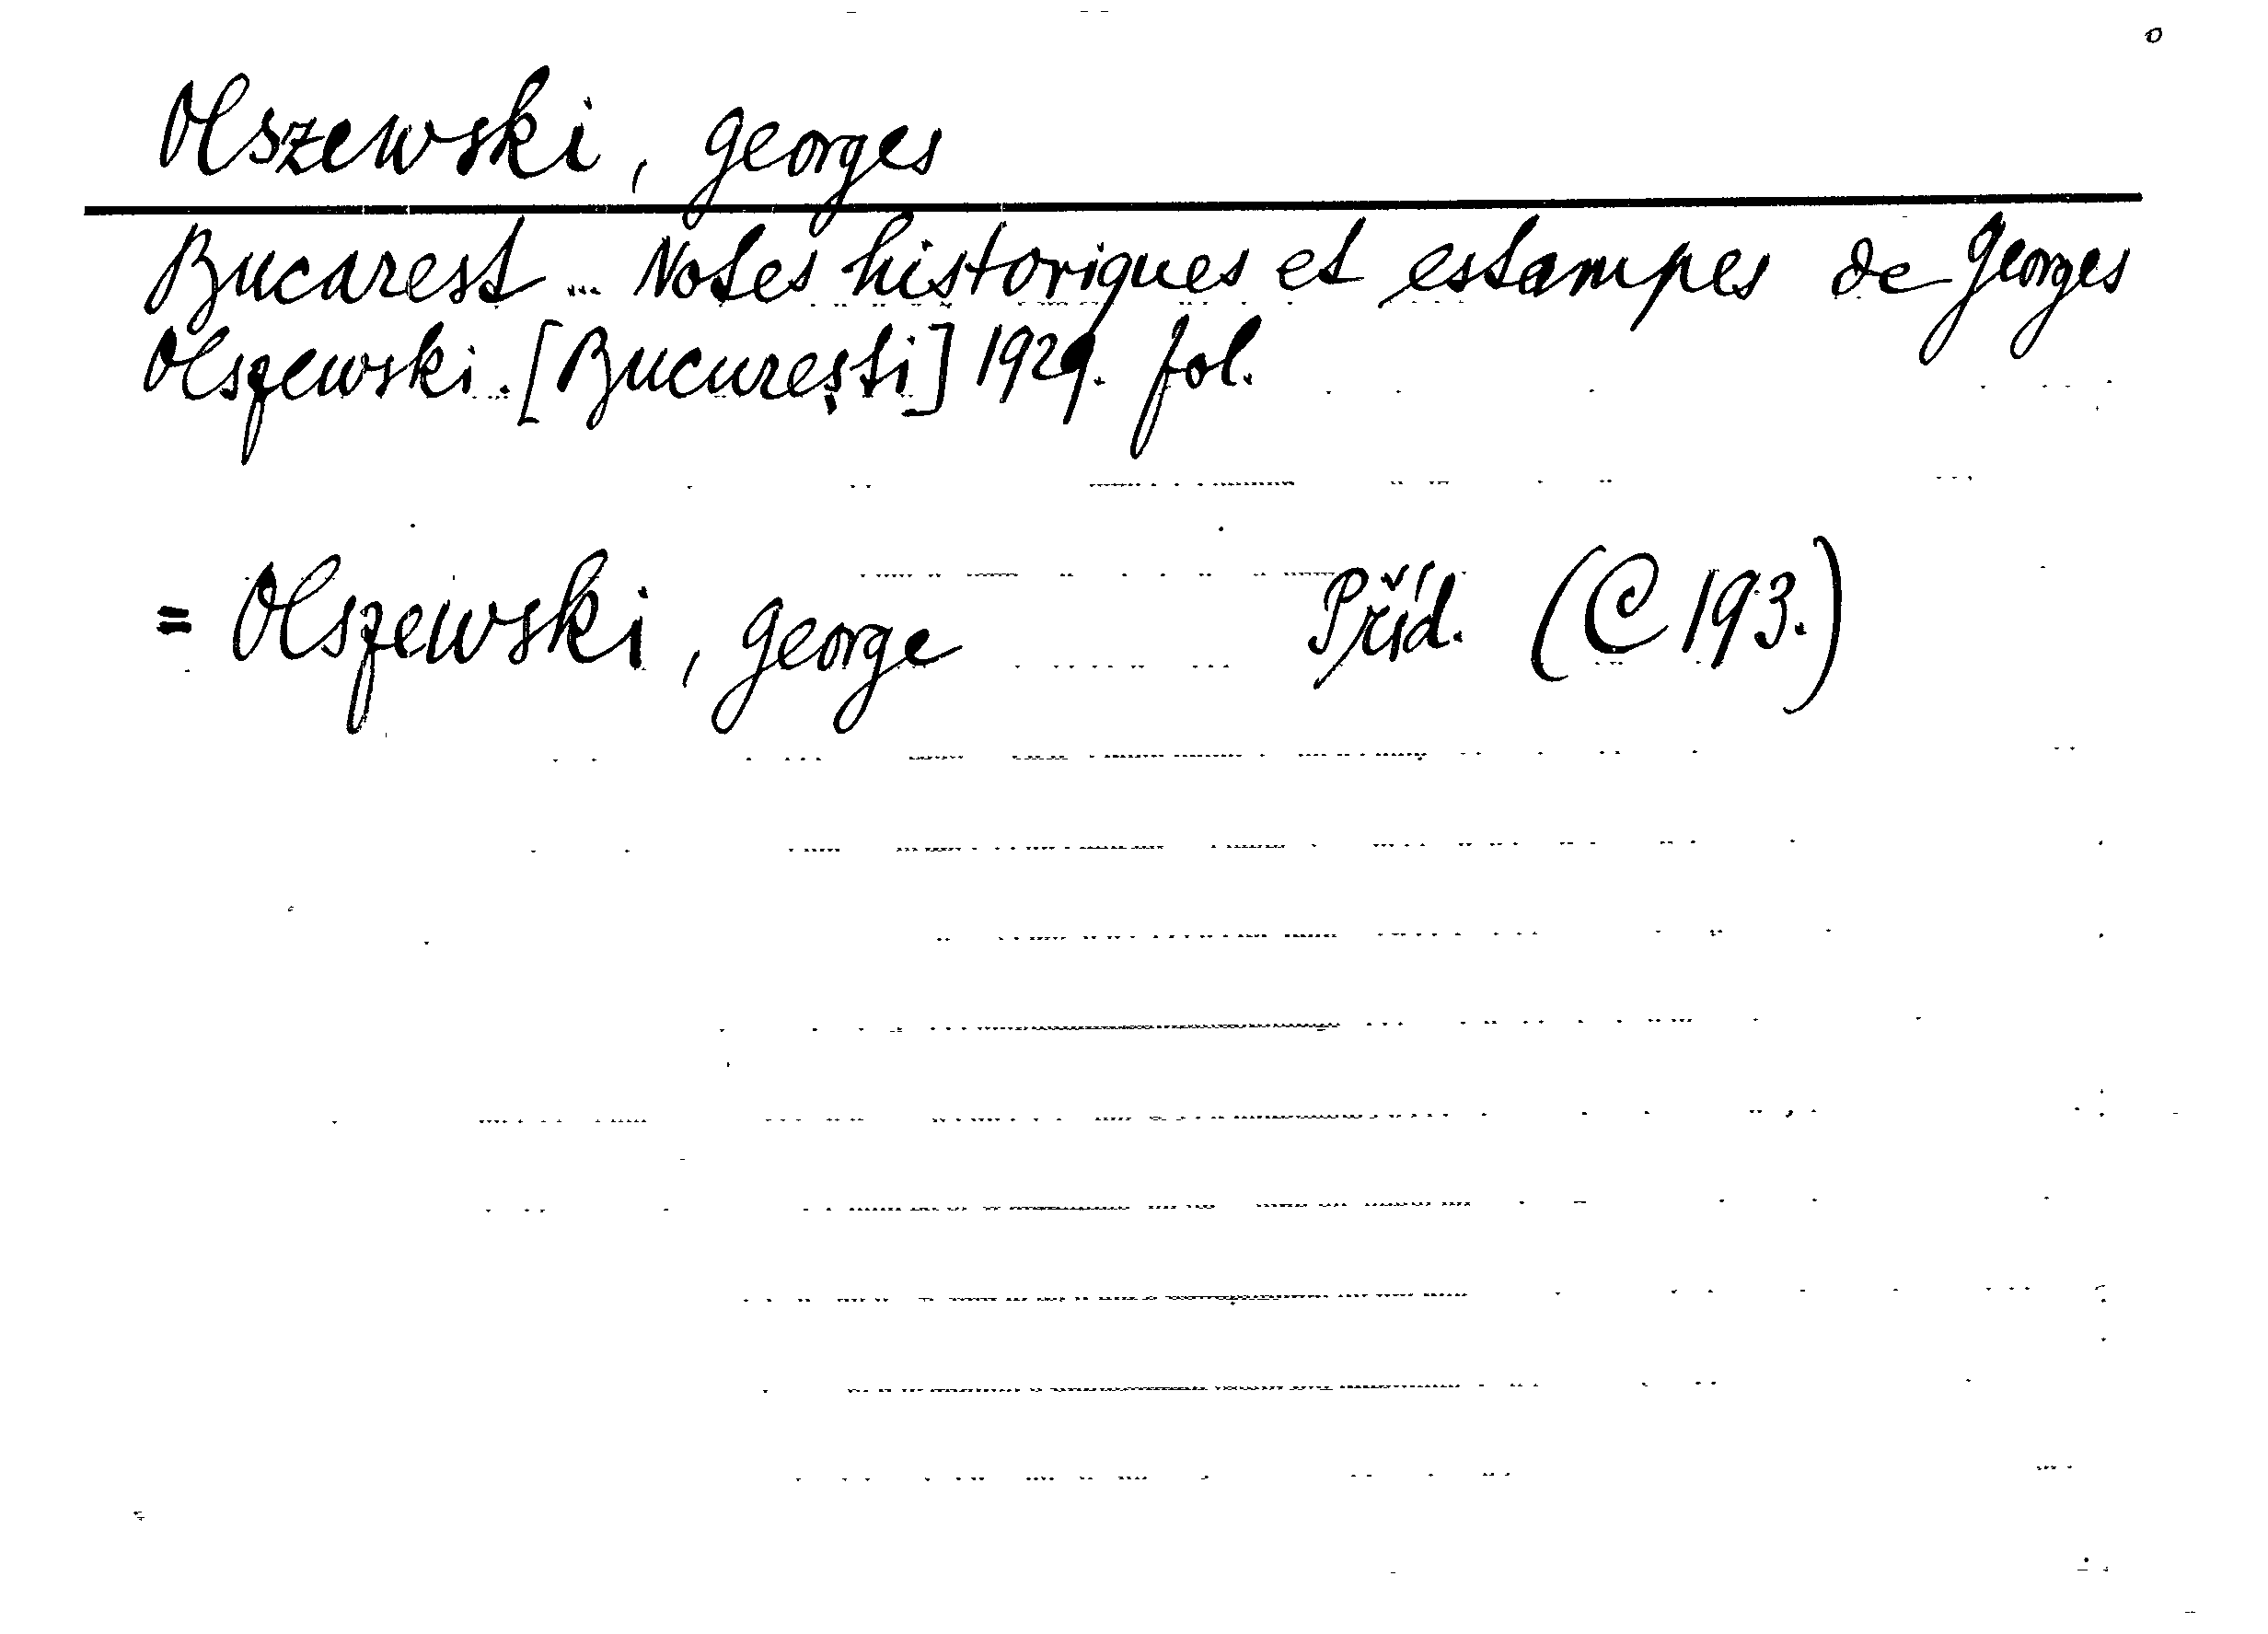 Olszewski, Georges
Bucarest... Notes historiques et estampes de Georges
Olszewski. [București] 1929. fol.
= Olszewski, George Příd. (C 193.)